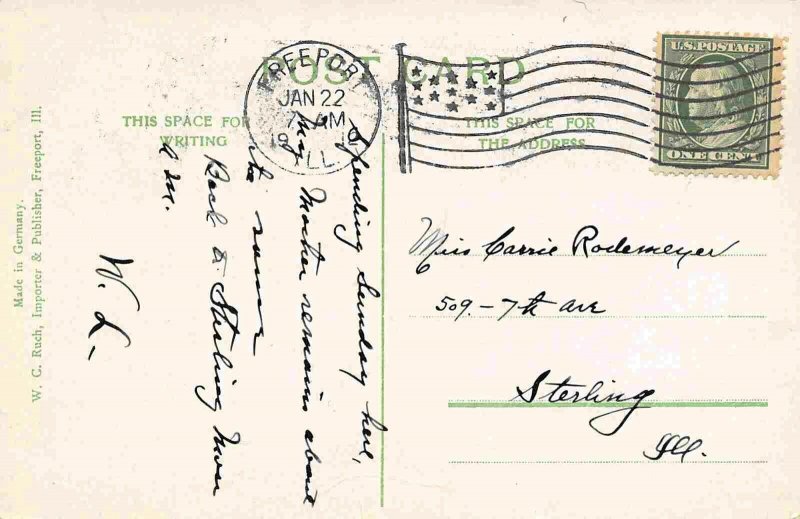 POST CARD
FREEPORT
JAN 22
7 PM
19
ILL.
U.S. POSTAGE
ONE CENT
THIS SPACE FOR
WRITING
THIS SPACE FOR
THE ADDRESS
Spending Sunday here,
My Mother remains about
the same
Back to Sterling Mon
a m.
W. L.
Miss Carrie Rodemeyer
509 - 7th ave
Sterling
Ill.
Made in Germany.
W. C. Ruch, Importer & Publisher, Freeport, Ill.